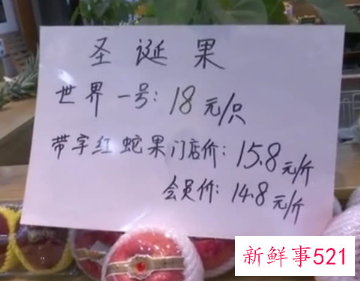 圣诞果
世界一号：18元/只
带字红蛇果门店价：15.8元/斤
会员价：14.8元/斤
新鲜事521